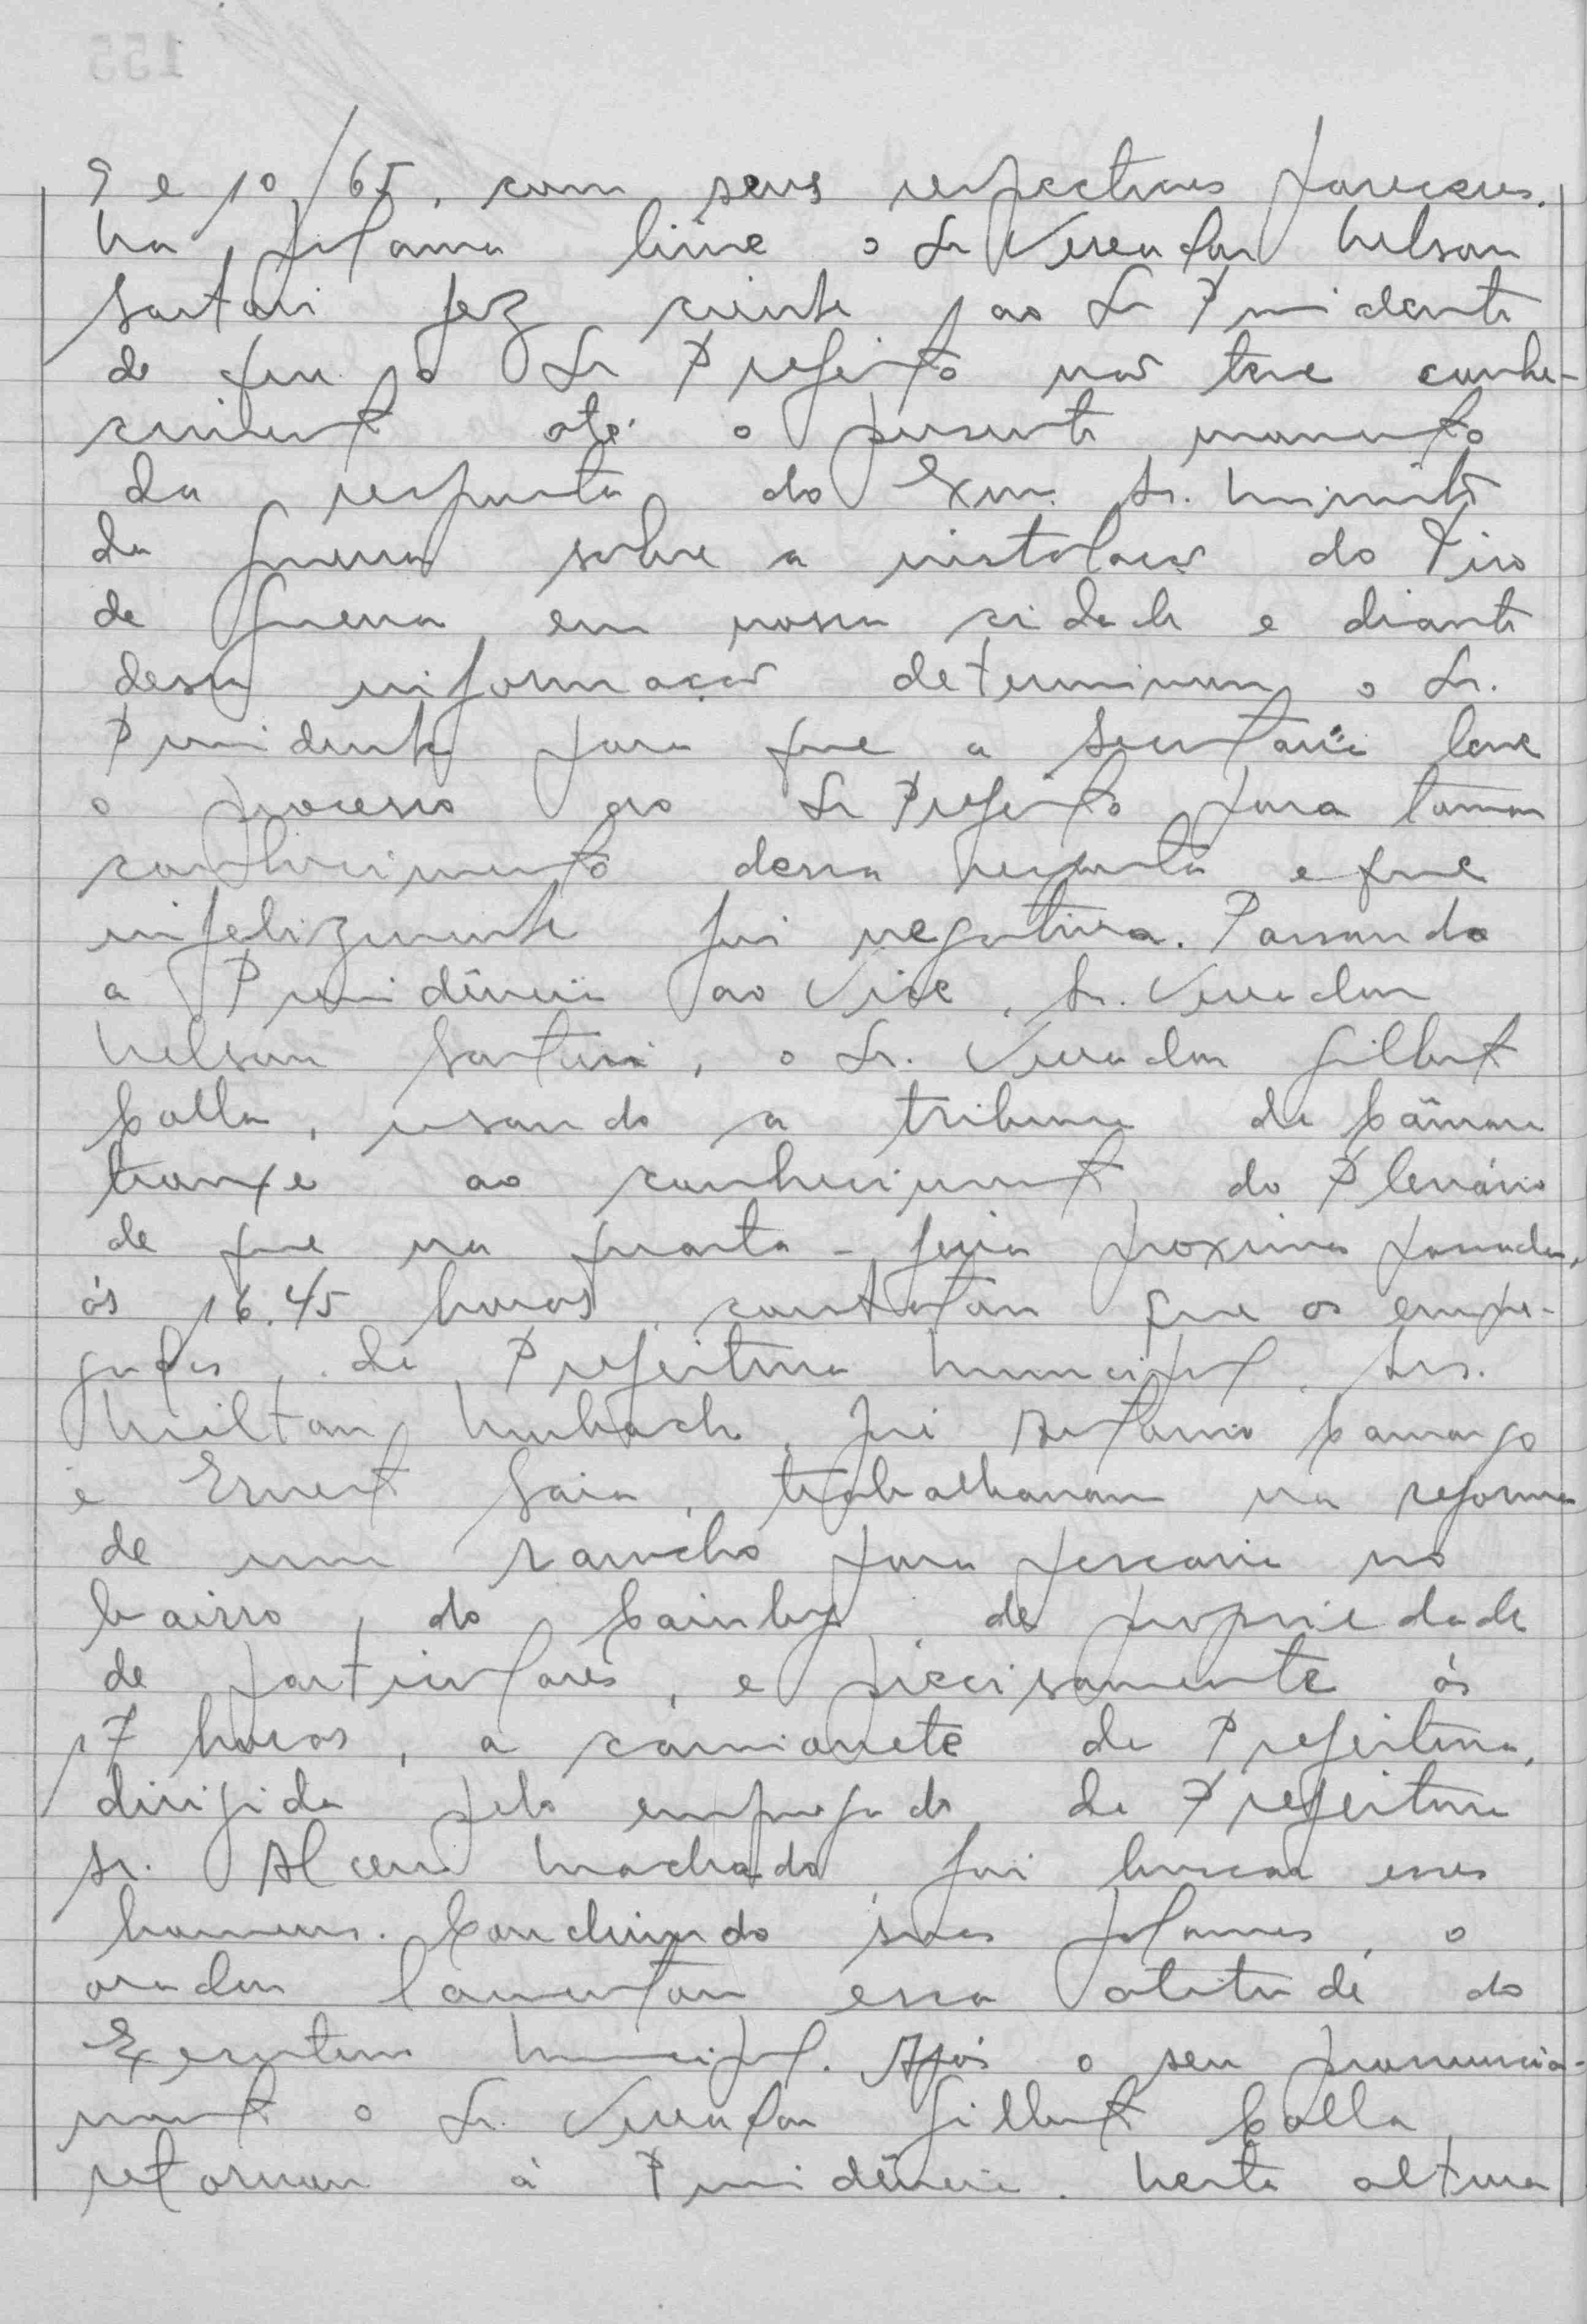 9 e 10/65, com seus respectivos pareceres.
Na palavra livre o Sr Vereador Nelson
Sartori fez ciente ao Sr Presidente
de que o Sr Prefeito não teve conhe-
cimento até o presente momento
da resposta do Exmo. Sr. Ministro
da Guerra sobre a instalação do Tiro
de Guerra em nossa cidade e diante
dessa informação determinou o Sr.
Presidente para que a Secretaria leve
o processo ao Sr Prefeito para tomar
conhecimento dessa resposta e que
infelizmente foi negativa. Passando
a Presidência ao Vice, Sr. Vereador
Nelson Sartori, o Sr. Vereador Gilberto
Colla, usando a tribuna da Câmara
trouxe ao conhecimento do Plenário
de que na quarta-feira proxima passada,
ás 16.45 horas, constatou que os empre-
gados da Prefeitura Municipal, Srs.
Milton Umbach, Jui Antonio Camargo
e Ernesto Saia, trabalhavam na reforma
de um rancho para pescaria no
bairro do Cainby, de propriedade
de particulares, e precisamente ás
17 horas, a camionete da Prefeitura,
dirigida pelo empregado da Prefeitura
Sr. Alceu Machado, foi buscar esses
homens. Concluindo suas palavras, o
orador lamentou essa atitude do
Executivo Municipal. Após o seu pronuncia-
mento o Sr. Vereador Gilberto Colla
retornou á Presidência. Nesta altura